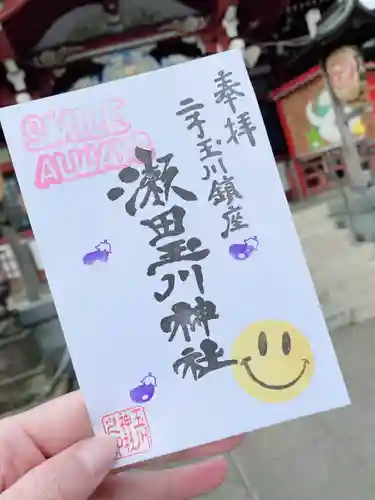 SMILE
ALWAYS
奉拝
二子玉川鎮座
瀬田玉川神社
玉川
神社